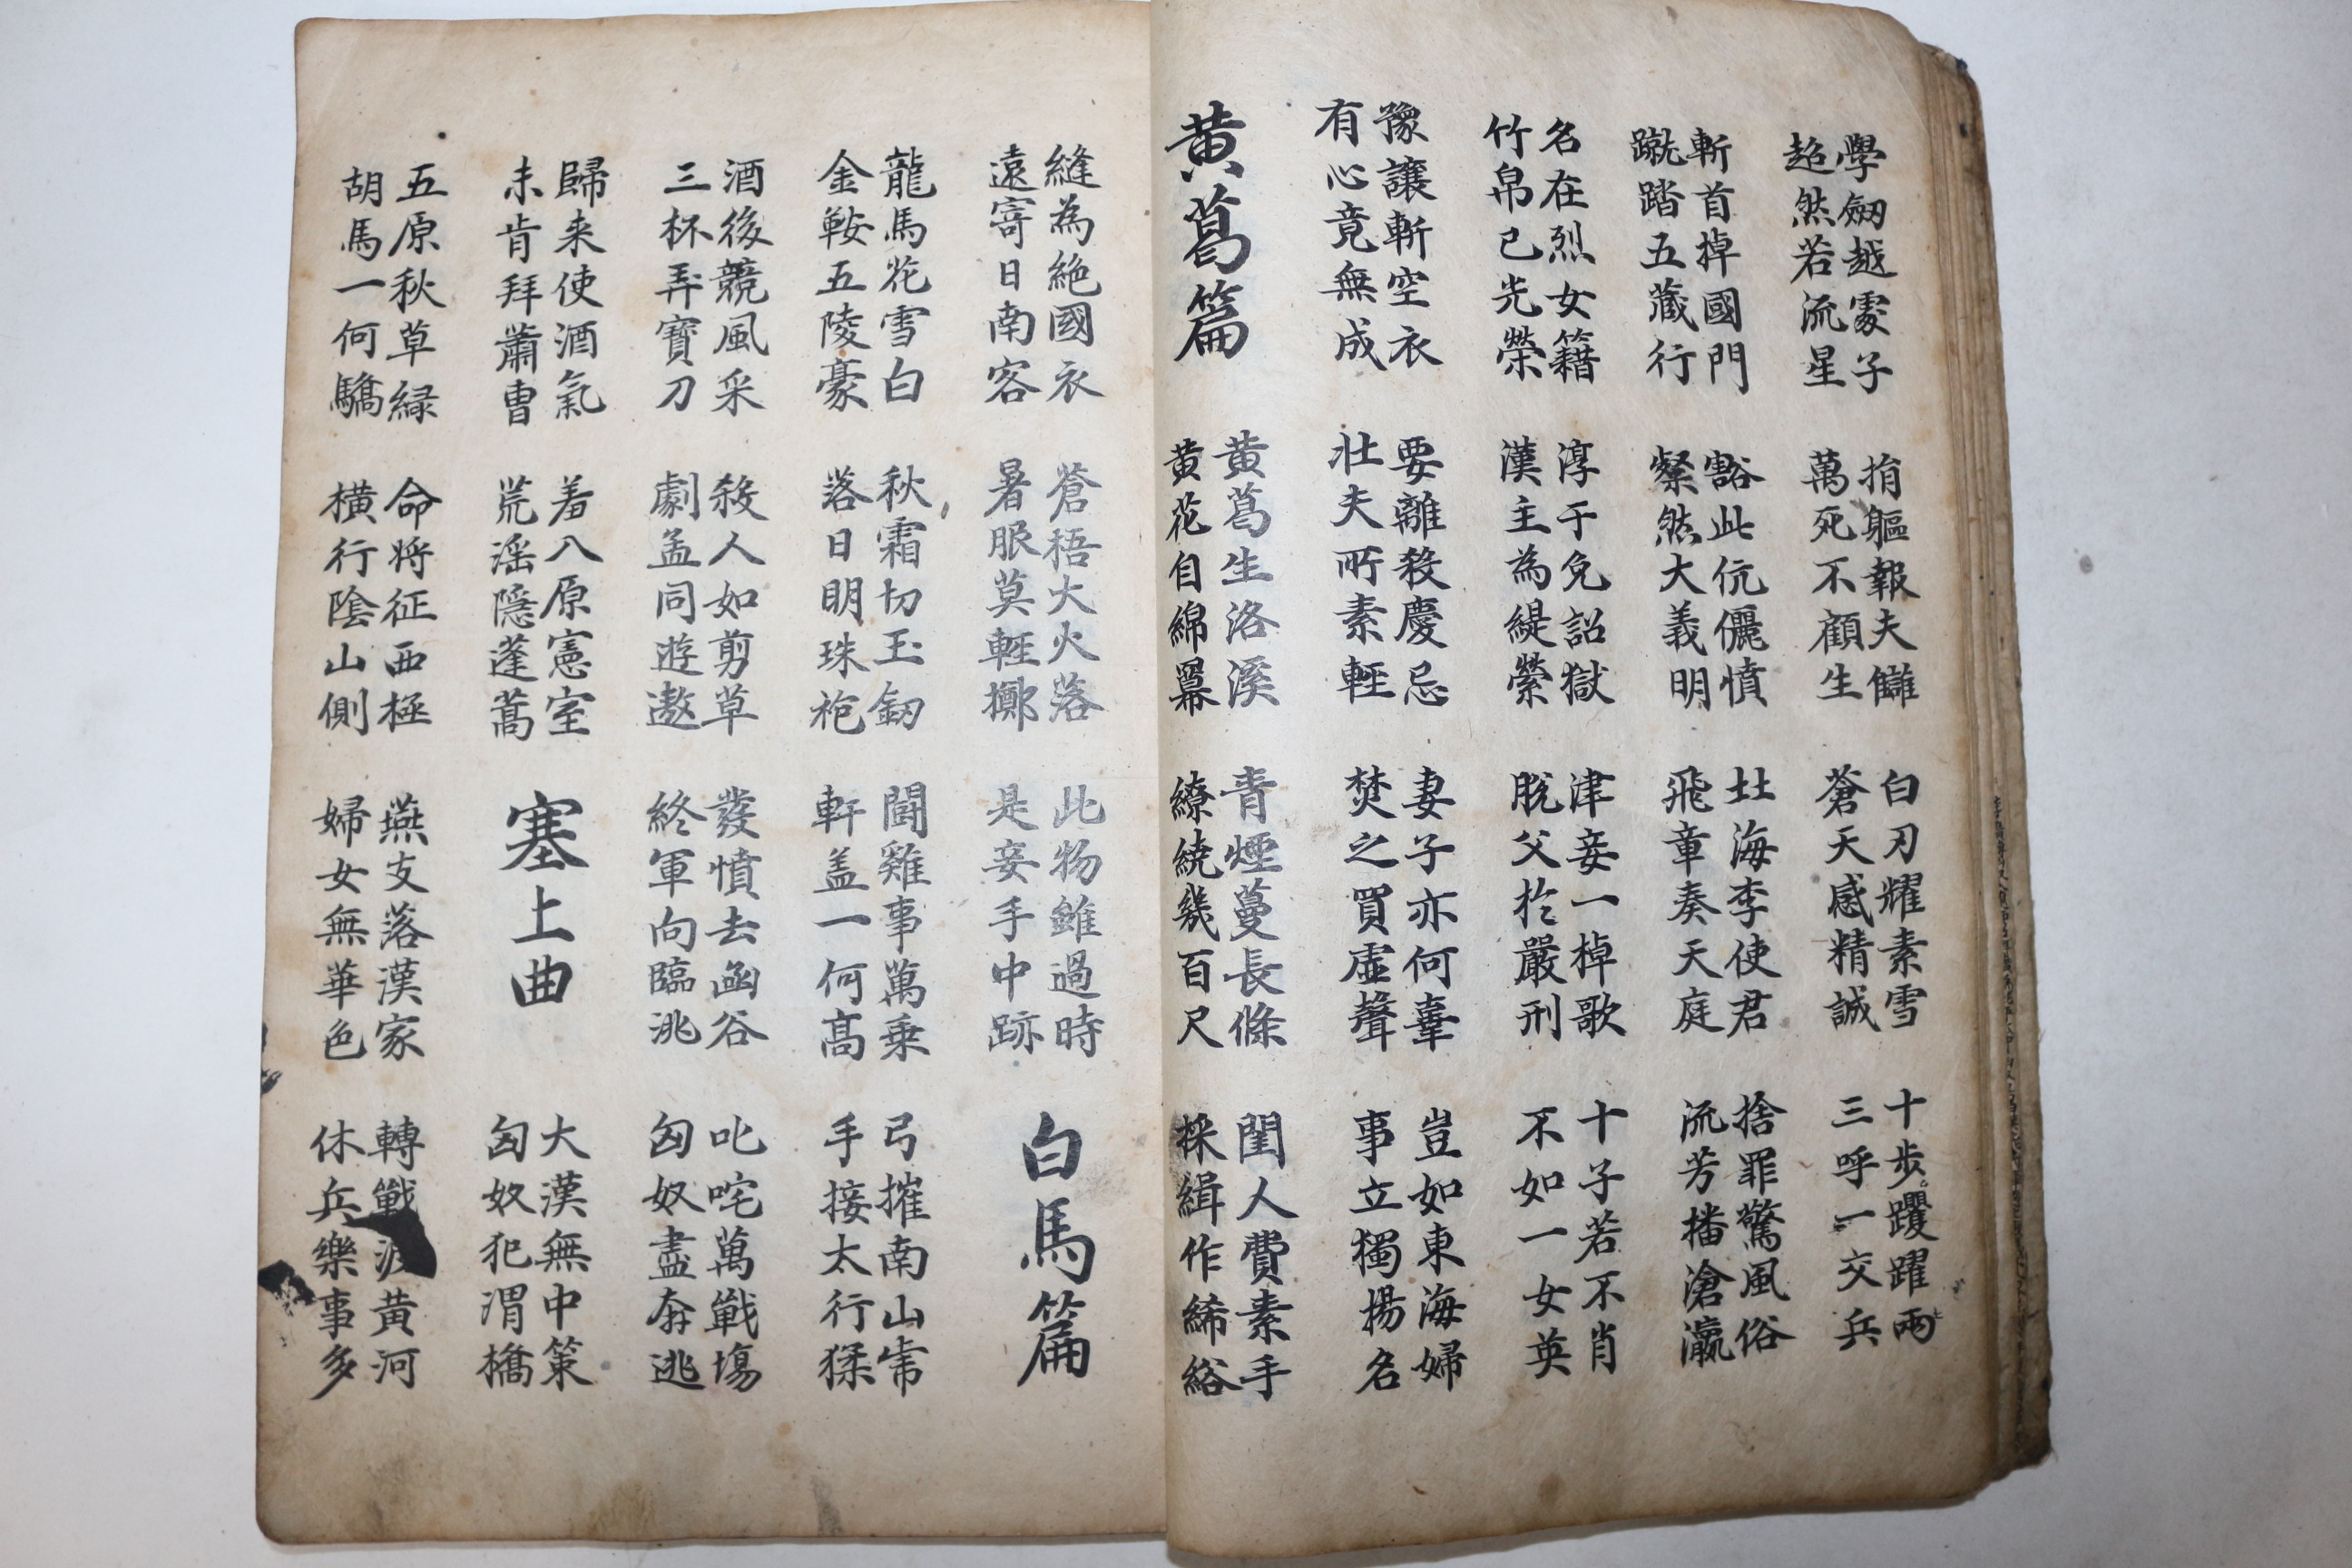 學劒越處子
超然若流星
捐軀報夫讎
萬死不顧生
白刃耀素雪
蒼天感精誠
十步躩躍兩
三呼一交兵
斬首掉國門
蹴踏五藏行
豁此伉儷憤
粲然大義明
北海李使君
飛章奏天庭
捨罪驚風俗
流芳播滄瀛
名在烈女籍
竹帛已光榮
淳于免詔獄
漢主為緹縈
津妾一棹歌
脫父於嚴刑
十子若不肖
不如一女英
豫讓斬空衣
有心竟無成
要離殺慶忌
壯夫所素輕
妻子亦何辜
焚之買虛聲
豈如東海婦
事立獨揚名
黄葛篇
黄葛生洛溪
黄花自綿冪
青煙蔓長條
繚繞幾百尺
閨人費素手
採緝作絺綌
縫為絶國衣
遠寄日南客
蒼梧大火落
暑服莫輕擲
此物雖過時
是妾手中跡
白馬篇
龍馬花雪白
金鞍五陵豪
秋霜切玉劒
落日明珠袍
鬪雞事萬乗
軒盖一何高
弓摧南山乕
手接太行猱
酒後競風采
三杯弄寶刀
殺人如剪草
劇孟同遊遨
發憤去函谷
終軍向臨洮
叱咤萬戰塲
匈奴盡奔逃
歸来使酒氣
未肯拜蕭曺
羞入原憲室
荒滛隱蓬蒿
塞上曲
大漢無中策
匈奴犯渭橋
五原秋草緑
胡馬一何驕
命将征西極
横行陰山側
燕支落漢家
婦女無華色
轉戰渡黄河
休兵樂事多